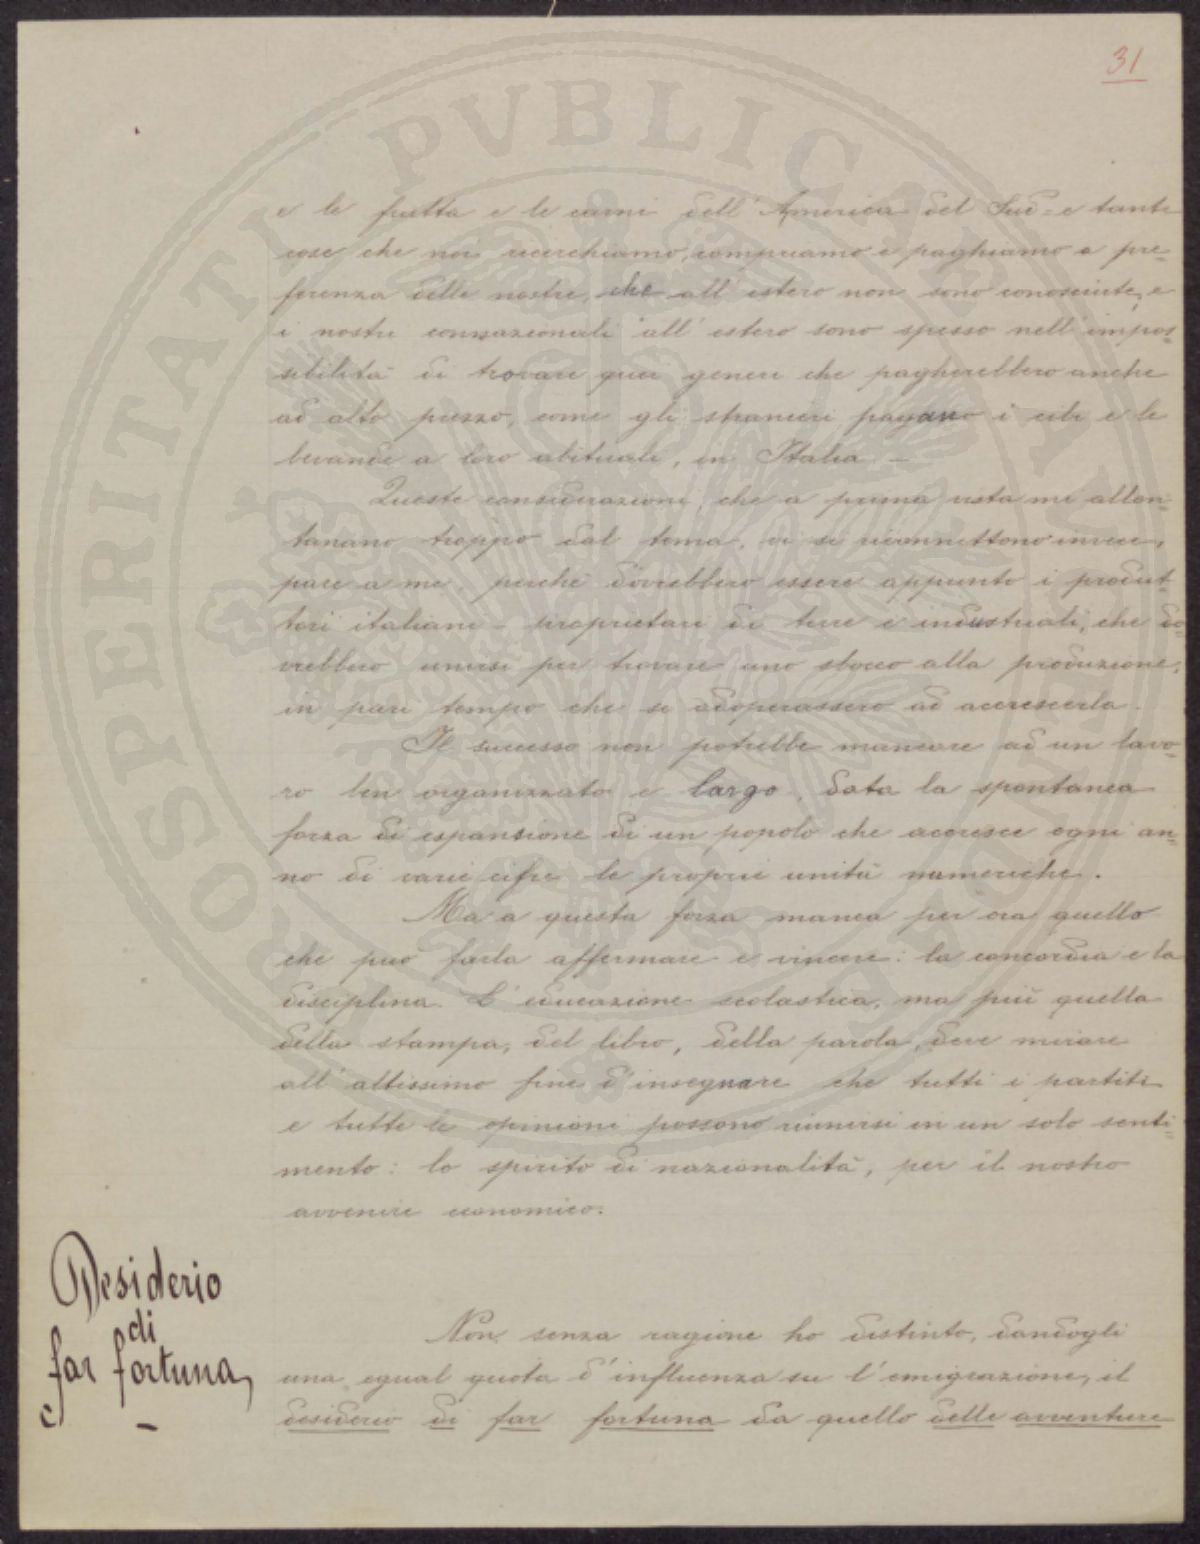 31
e le frutta e le carni dell'America del Sud - e tante
cose che noi ricerchiamo, compriamo e paghiamo a pre=
ferenza delle nostre, che all'estero non sono conosciute, e
i nostri connazionali all'estero sono spesso nell'impos=
sibilità di trovare quei generi che pagherebbero anche
ad alto prezzo, come gli stranieri pagano i cibi e le
bevande a loro abituali, in Italia. —
Queste considerazioni, che a prima vista mi allon=
tanano troppo dal tema, vi si riconnettono invece,
pare a me, perchè dovrebbero essere appunto i produt=
tori italiani - proprietari di terre e industriali, che do=
vrebbero unirsi per trovare uno sbocco alla produzione,
in pari tempo che si adoperassero ad accrescerla.
Il successo non potrebbe mancare ad un lavo=
ro ben organizzato e largo, data la spontanea
forza di espansione di un popolo che accresce ogni an=
no di varie cifre le proprie unità numeriche.
Ma a questa forza manca per ora quello
che può farla affermare e vincere: la concordia e la
disciplina. L'educazione scolastica, ma più quella
della stampa, del libro, della parola, deve mirare
all'altissimo fine d'insegnare che tutti i partiti
e tutte le opinioni possono riunirsi in un solo senti=
mento: lo spirito di nazionalità, per il nostro
avvenire economico.
Desiderio
di
far fortuna,
—
Non senza ragione ho distinto, dandogli
una egual quota d'influenza su l'emigrazione, il
desiderio di far fortuna da quello delle avventure
PROSPERITATI PVBLICAE